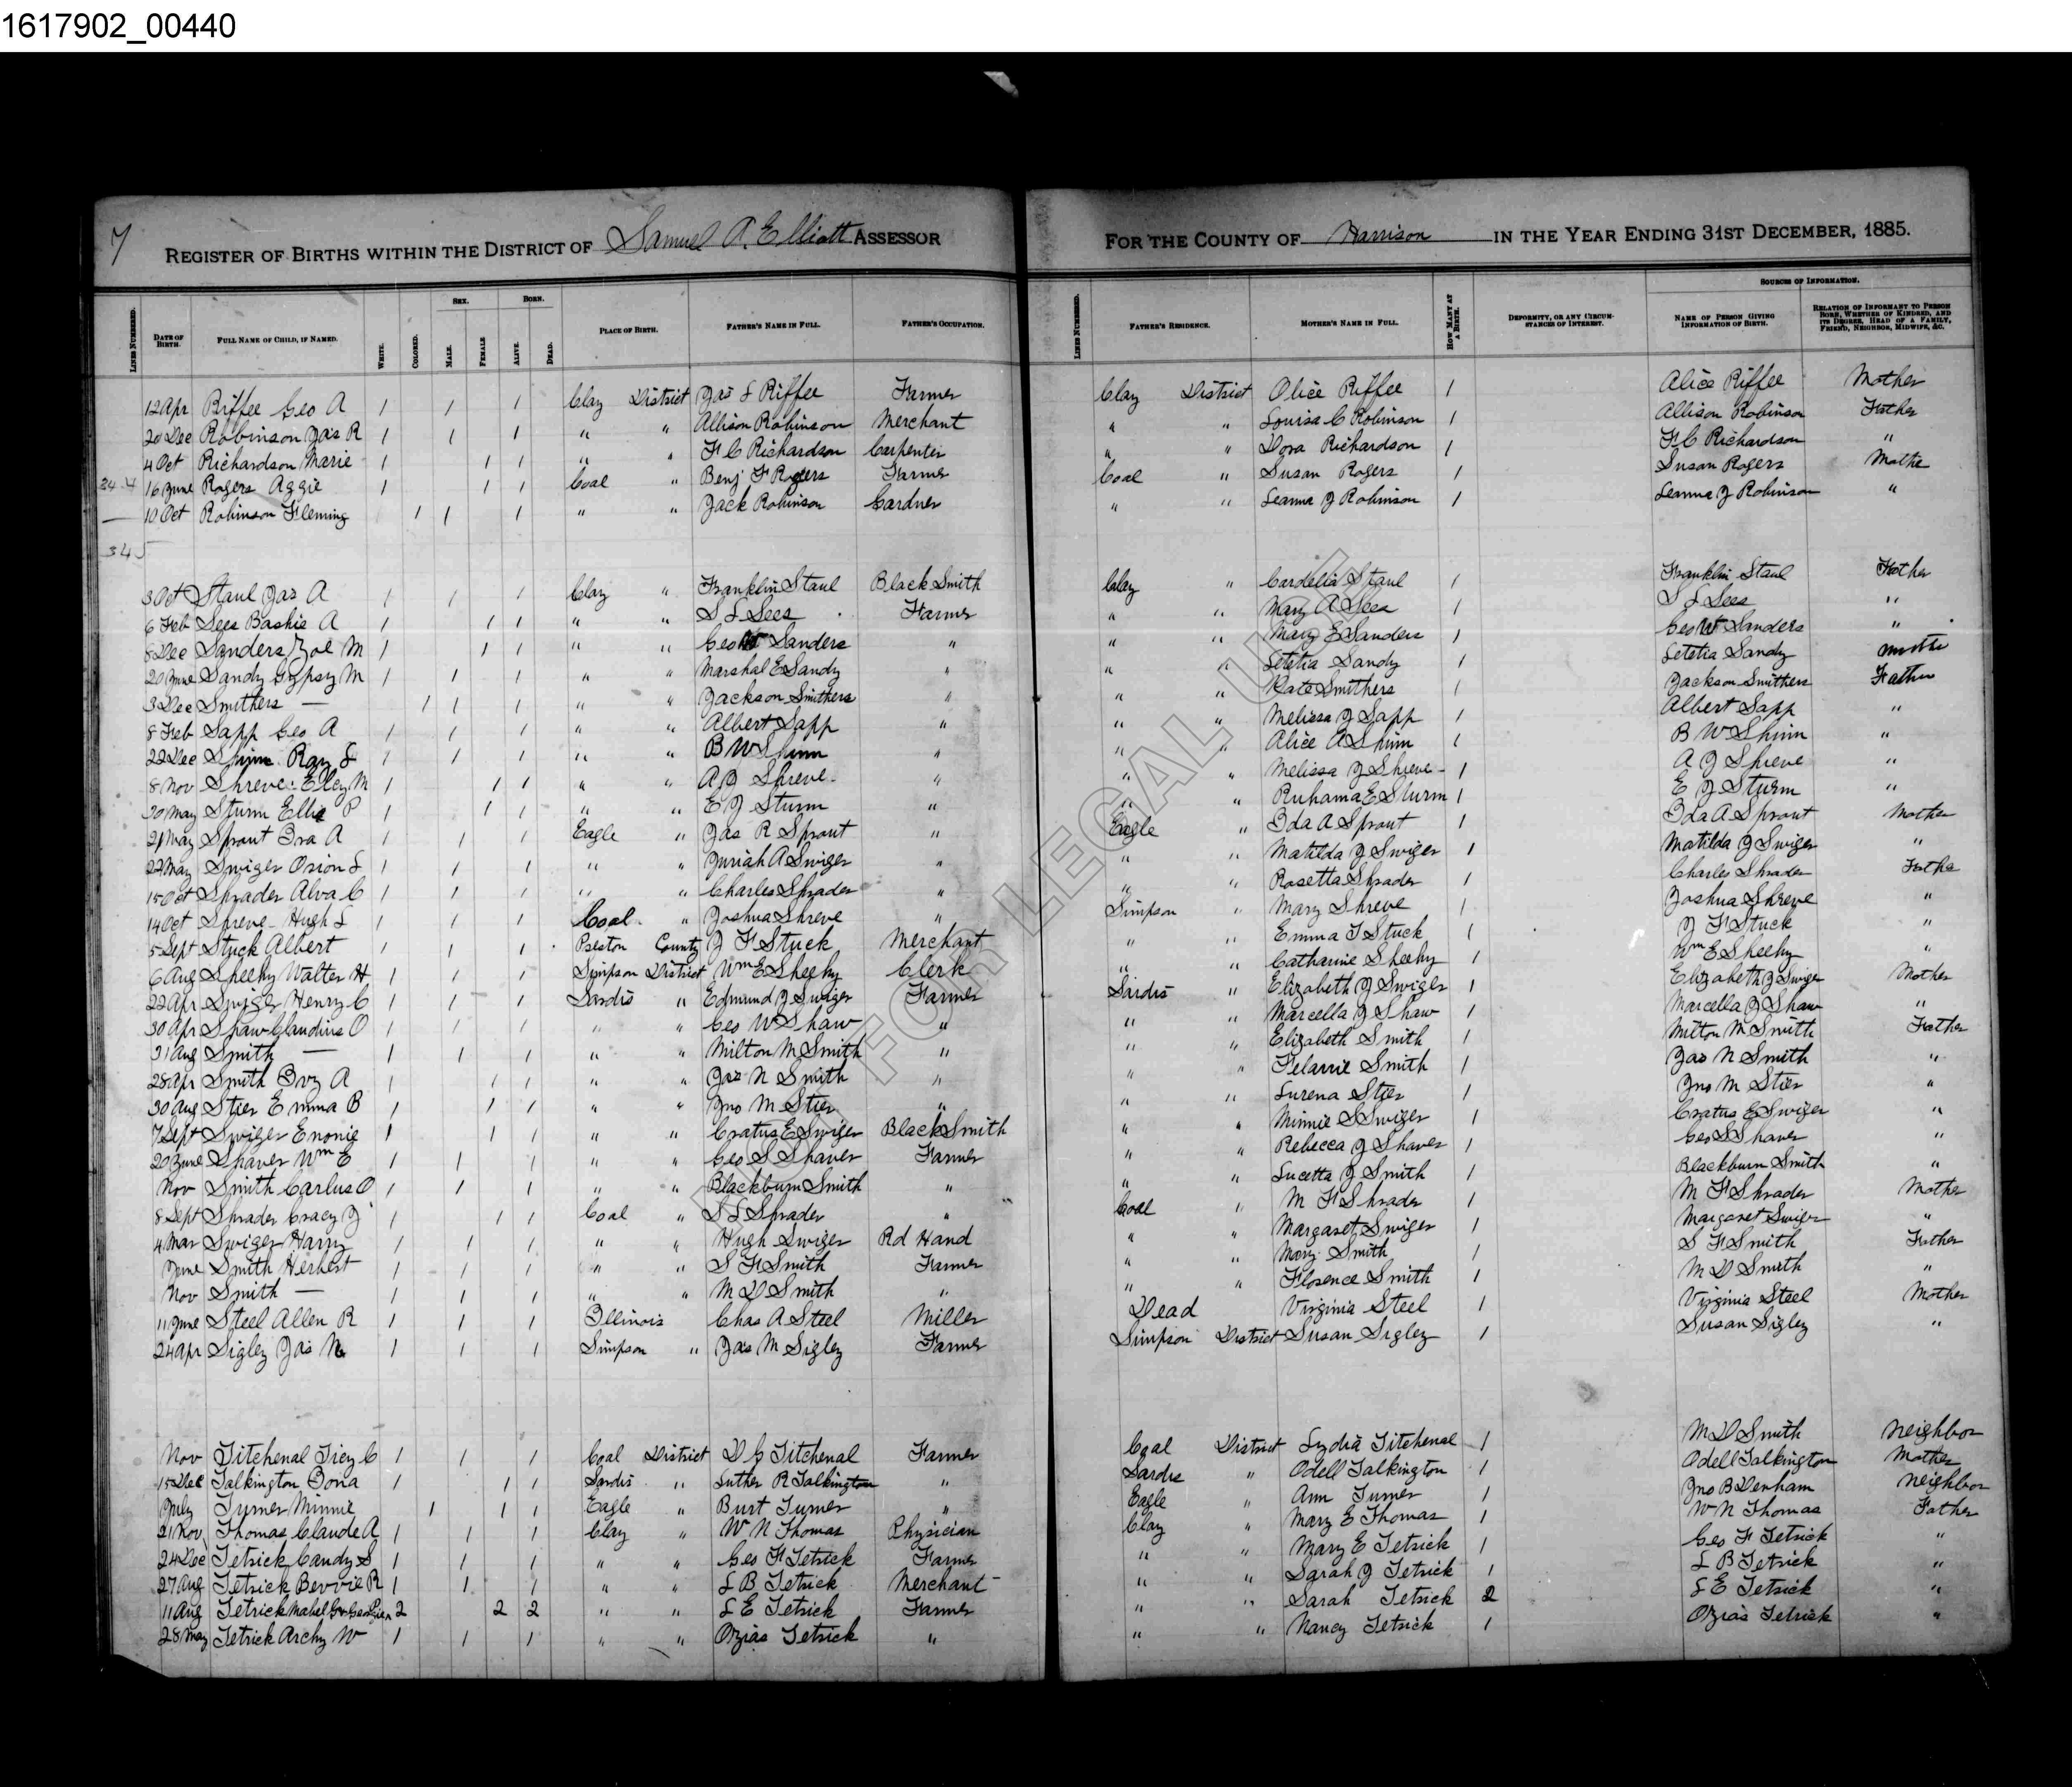 1617902_00440
7 REGISTER OF BIRTHS WITHIN THE DISTRICT OF Samuel A. Elliott ASSESSOR FOR THE COUNTY OF Harrison IN THE YEAR ENDING 31ST DECEMBER, 1885.
SEX. BORN. SOURCES OF INFORMATION.
LINES NUMBERED. DATE OF BIRTH. FULL NAME OF CHILD, IF NAMED. WHITE. COLORED. MALE. FEMALE ALIVE. DEAD. PLACE OF BIRTH. FATHER'S NAME IN FULL. FATHER'S OCCUPATION. LINES NUMBERED. FATHER'S RESIDENCE. MOTHER'S NAME IN FULL. HOW MANY AT A BIRTH. DEFORMITY, OR ANY CIRCUMSTANCES OF INTEREST. NAME OF PERSON GIVING INFORMATION OF BIRTH. RELATION OF INFORMANT TO PERSON BORN, WHETHER OF KINDRED, AND ITS DEGREE, HEAD OF A FAMILY, FRIEND, NEIGHBOR, MIDWIFE, &C.
12 Apr Riffee Geo A 1 1 1 Clay District Jas L Riffee Farmer Clay District Olice Riffee 1 Alice Riffee Mother
20 Dec Robinson Jas R 1 1 1 " " Allison Robinson Merchant " " Louisa C Robinson 1 Allison Robinson Father
4 Oct Richardson Marie 1 1 1 " " F C Richardson Carpenter " " Dora Richardson 1 F C Richardson "
344 16 June Rogers Aggie 1 1 1 Coal " Benj F Rogers Farmer Coal " Susan Rogers 1 Susan Rogers Mothe
10 Oct Robinson Fleming 1 1 1 " " Jack Robinson Gardner " " Leanna J Robinson 1 Leanna J Robinson "
345
3 Oct Staul Jas A 1 1 1 Clay " Franklin Staul Black Smith Clay " Cardelia Staul 1 Franklin Staul Father
6 Feb Sees Bashie A 1 1 1 " " S L Sees Farmer " " Mary A Sees 1 S L Sees "
8 Dec Sanders Zoe M 1 1 1 " " Geo W Sanders " " " Mary E Sanders 1 Geo W Sanders "
20 June Sandy Gypsy M 1 1 1 " " Marshal E Sandy " " " Letetia Sandy 1 Letetia Sandy Mother
3 Dec Smithers — 1 1 1 " " Jackson Smithers " " " Kate Smithers 1 Jackson Smithers Father
8 Feb Sapp Geo A 1 1 1 " " Albert Sapp " " " Melissa J Sapp 1 Albert Sapp "
22 Dec Shinn Ray L 1 1 1 " " B W Shinn " " " Alice A Shinn 1 B W Shinn "
8 Nov Shreve Eley M 1 1 1 " " A J Shreve " " " Melissa J Shreve 1 A J Shreve "
30 May Sturm Ellie P 1 1 1 " " E J Sturm " " " Ruhama E Sturm 1 E J Sturm "
21 May Sprout Ira A 1 1 1 Eagle " Jas R Sprout " Eagle " Ida A Sprout 1 Ida A Sprout Mother
22 May Swiger Orion L 1 1 1 " " A Swiger " " " Matilda J Swiger 1 Matilda J Swiger "
15 Oct Shrader Alva C 1 1 1 " " Charles Shrader " " " Rosetta Shrader 1 Charles Shrader Father
14 Oct Shreve Hugh L 1 1 1 Coal " Joshua Shreve " Simpson " Mary Shreve 1 Joshua Shreve "
5 Sept Stuck Albert 1 1 1 Preston County J F Stuck Merchant " " Emma J Stuck 1 J F Stuck "
6 Aug Sheehy Walter H 1 1 1 Simpson District Wm E Sheehy Clerk " " Catharine Sheehy 1 Wm E Sheehy "
22 Apr Swiger Henry C 1 1 1 Sardis " Edmund J Swiger Farmer Sardis " Elizabeth J Swiger 1 Elizabeth J Swiger Mother
30 Apr Shaw Glaudius O 1 1 1 " " Geo W Shaw " " " Marcella J Shaw 1 Marcella J Shaw "
31 Aug Smith — 1 1 1 " " Milton M Smith " " " Elizabeth Smith 1 Milton M Smith Father
28 Apr Smith Ivy A 1 1 1 " " Jas N Smith " " " Smith 1 Jas N Smith "
30 Aug Stier Emma B 1 1 1 " " Jno M Stier " " " Lurena Stier 1 Jno M Stier "
7 Sept Swiger Enonie 1 1 1 " " Cratus E Swiger Black Smith " " Minnie S Swiger 1 Cratus E Swiger "
20 June Shaver Wm E 1 1 1 " " Geo S Shaver Farmer " " Rebecca J Shaver 1 Geo S Shaver "
Nov Smith Carlus O 1 1 1 " " Blackburn Smith " " " Lucetta J Smith 1 Blackburn Smith "
8 Sept Shrader Cracy J 1 1 1 Coal " S L Shrader " Coal " M F Shrader 1 M F Shrader Mother
4 Mar Swiger Harry 1 1 1 " " Hugh Swiger Rd Hand " " Margaret Swiger 1 Margaret Swiger "
June Smith Herbert 1 1 1 " " S F Smith Farmer " " Mary Smith 1 S F Smith Father
Nov Smith — 1 1 1 " " M D Smith " " " Florence Smith 1 M D Smith "
11 June Steel Allen R 1 1 1 Illinois Chas A Steel Miller Dead Virginia Steel 1 Virginia Steel Mother
24 Apr Sigley Jas M 1 1 1 Simpson " Jas M Sigley Farmer Simpson District Susan Sigley 1 Susan Sigley "
Nov Titchenal Trey C 1 1 1 Coal District D G Titchenal Farmer Coal District Lydia Titchenal 1 M D Smith Neighbor
15 Dec Talkington Dona 1 1 1 Sardis " Luther R Talkington " Sardis " Odell Talkington 1 Odell Talkington Mother
July Turner Minnie 1 1 1 Eagle " Burt Turner " Eagle " Ann Turner 1 Jno B Denham Neighbor
21 Nov Thomas Claude A 1 1 1 Clay " W N Thomas Physician Clay " Mary E Thomas 1 W N Thomas Father
24 Dec Tetrick Candy S 1 1 1 " " Geo F Tetrick Farmer " " Mary E Tetrick 1 Geo F Tetrick "
27 Aug Tetrick Bevvie R 1 1 1 " " L B Tetrick Merchant " " Sarah J Tetrick 1 L B Tetrick "
11 Aug Tetrick Mabel 2 2 2 " " L E Tetrick Farmer " " Sarah Tetrick 2 L E Tetrick "
28 May Tetrick Archy W 1 1 1 " " Ozias Tetrick " " " Nancy Tetrick 1 Ozias Tetrick "
FOR LEGAL USE